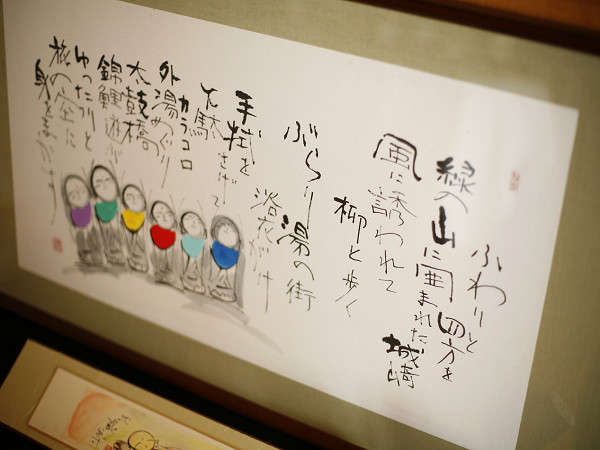 ふわりと
四方を
緑の山に囲まれた
城崎
風に誘われて
柳と歩く
ぶらり湯の街
浴衣がけ
手拭を
下駄
さげて
カラコロ
外湯めぐり
太鼓橋
錦鯉遊ぶ
ゆったりと
旅の空に
身をまかす